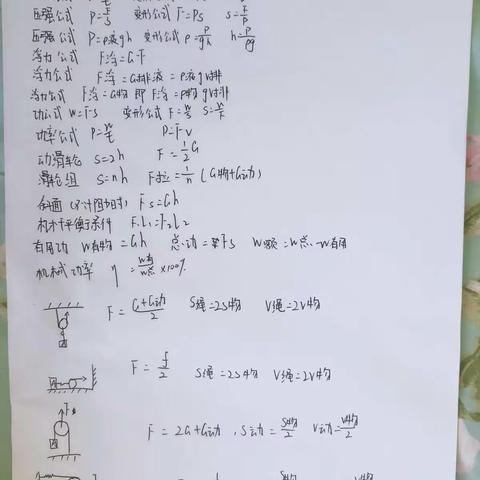 压强公式 P=F/S 变形公式 F=PS S=F/P
压强公式 P=ρ液gh 变形公式 ρ=P/gh h=P/ρg
浮力公式 F浮=G-F
浮力公式 F浮=G排液=ρ液gV排
浮力公式 F浮=G物 即 F浮=ρ物gV排
功公式 W=FS 变形公式 F=W/S S=W/F
功率公式 P=W/t P=Fv
动滑轮 S=2h F=1/2G
滑轮组 S=nh F拉=1/n(G物+G动)
斜面(不计阻力时) FS=Gh
杠杆平衡条件 F₁L₁=F₂L₂
有用功 W有物=Gh 总功=FS W额=W总-W有用
机械功率 η=W有/W总×100%
F=G+G动/2 S绳=2S物 V绳=2V物
F=f/2 S绳=2S物 V绳=2V物
F
F=2G+G动,S动=S物/2 V动=V物/2